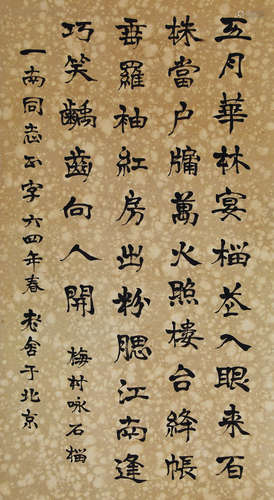 五月華林宴榴花入眼来百
株當户牖萬火照樓台絳帳
垂羅袖紅房出粉腮江南逢
巧笑齲齒向人開 梅村咏石榴
一南同志正字六四年春 老舍于北京